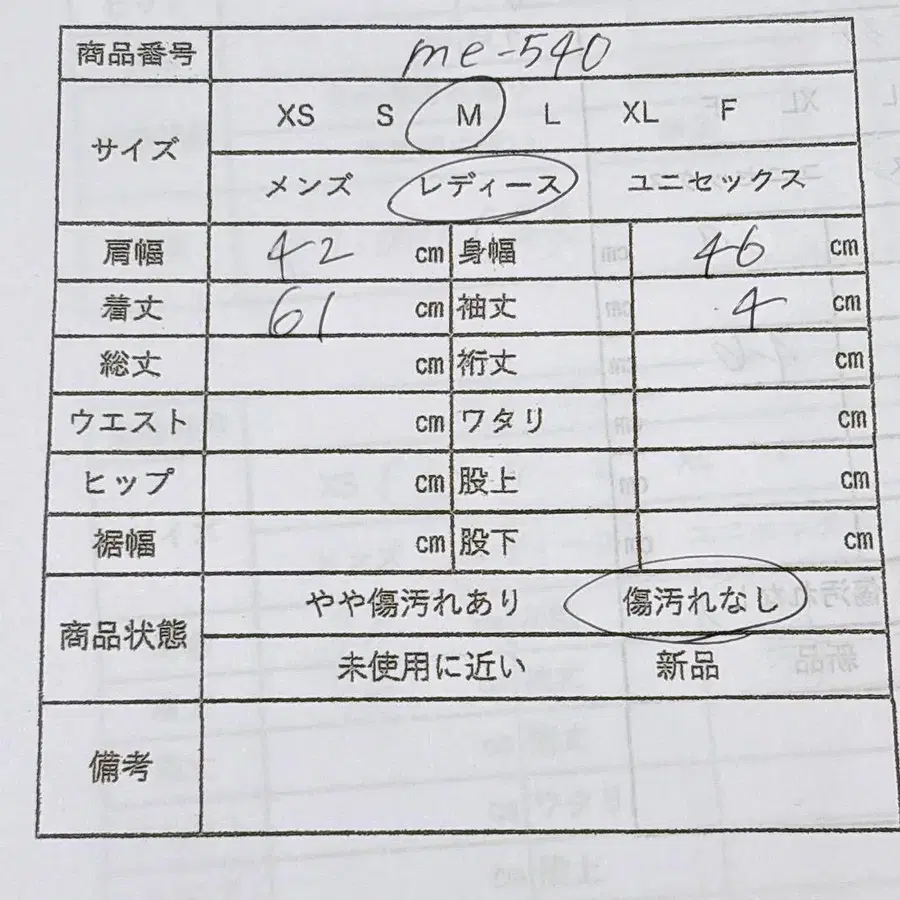 商品番号 me-540
サイズ XS S M L XL F
メンズ レディース ユニセックス
肩幅 42 cm 身幅 46 cm
着丈 61 cm 袖丈 4 cm
総丈 cm 裄丈 cm
ウエスト cm ワタリ cm
ヒップ cm 股上 cm
裾幅 cm 股下 cm
商品状態 やや傷汚れあり 傷汚れなし
未使用に近い 新品
備考